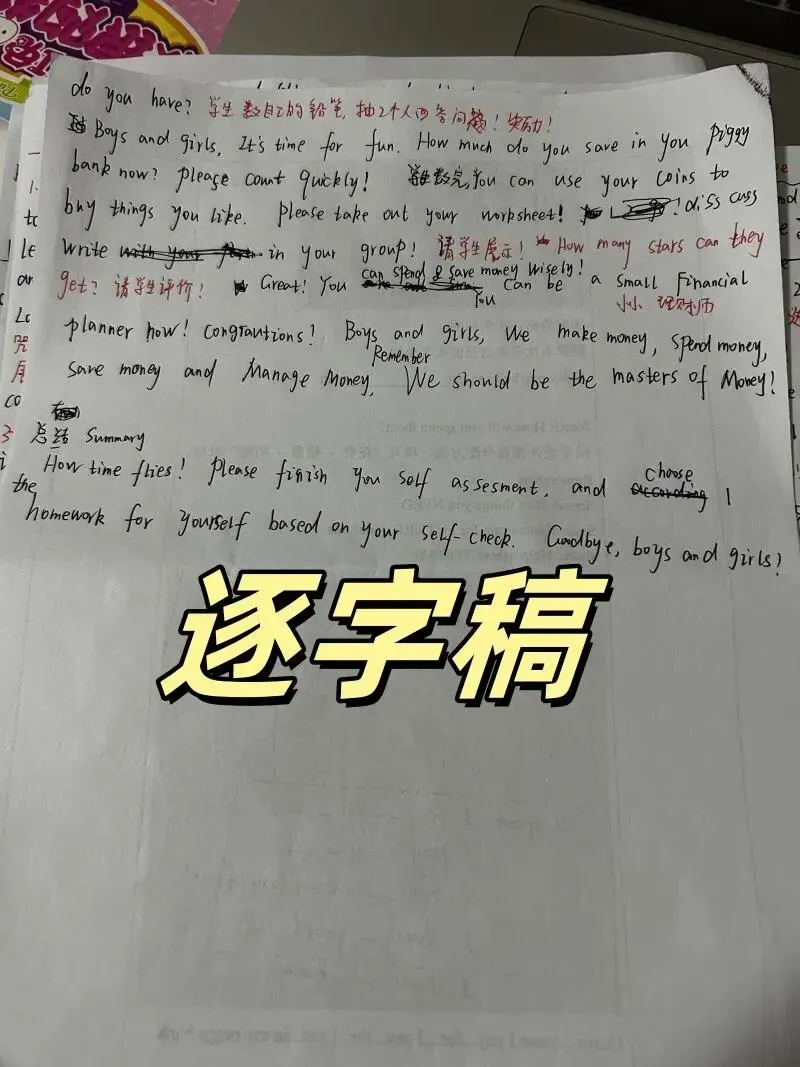 do you have? 学生数自己的铅笔,抽2个人回答问题!实励!
Boys and girls, It's time for fun. How much do you save in you piggy
bank now? please count quickly! 学生数完,You can use your coins to
buy things you like. please take out your worksheet! ! diss cuss
write in your group! 请学生展示! How many stars can they
get? 请学生评价! Great! You can spend & save money wisely!
You can be a small Financial
小小 理财师
planner now! congrautions! Boys and girls, We make money, spend money,
save money and Manage Money, Remember We should be the masters of Money!
总结 Summary
How time flies! please finish you self assesment, and choose
the homework for yourself based on your self-check. Goodbye, boys and girls!
逐字稿